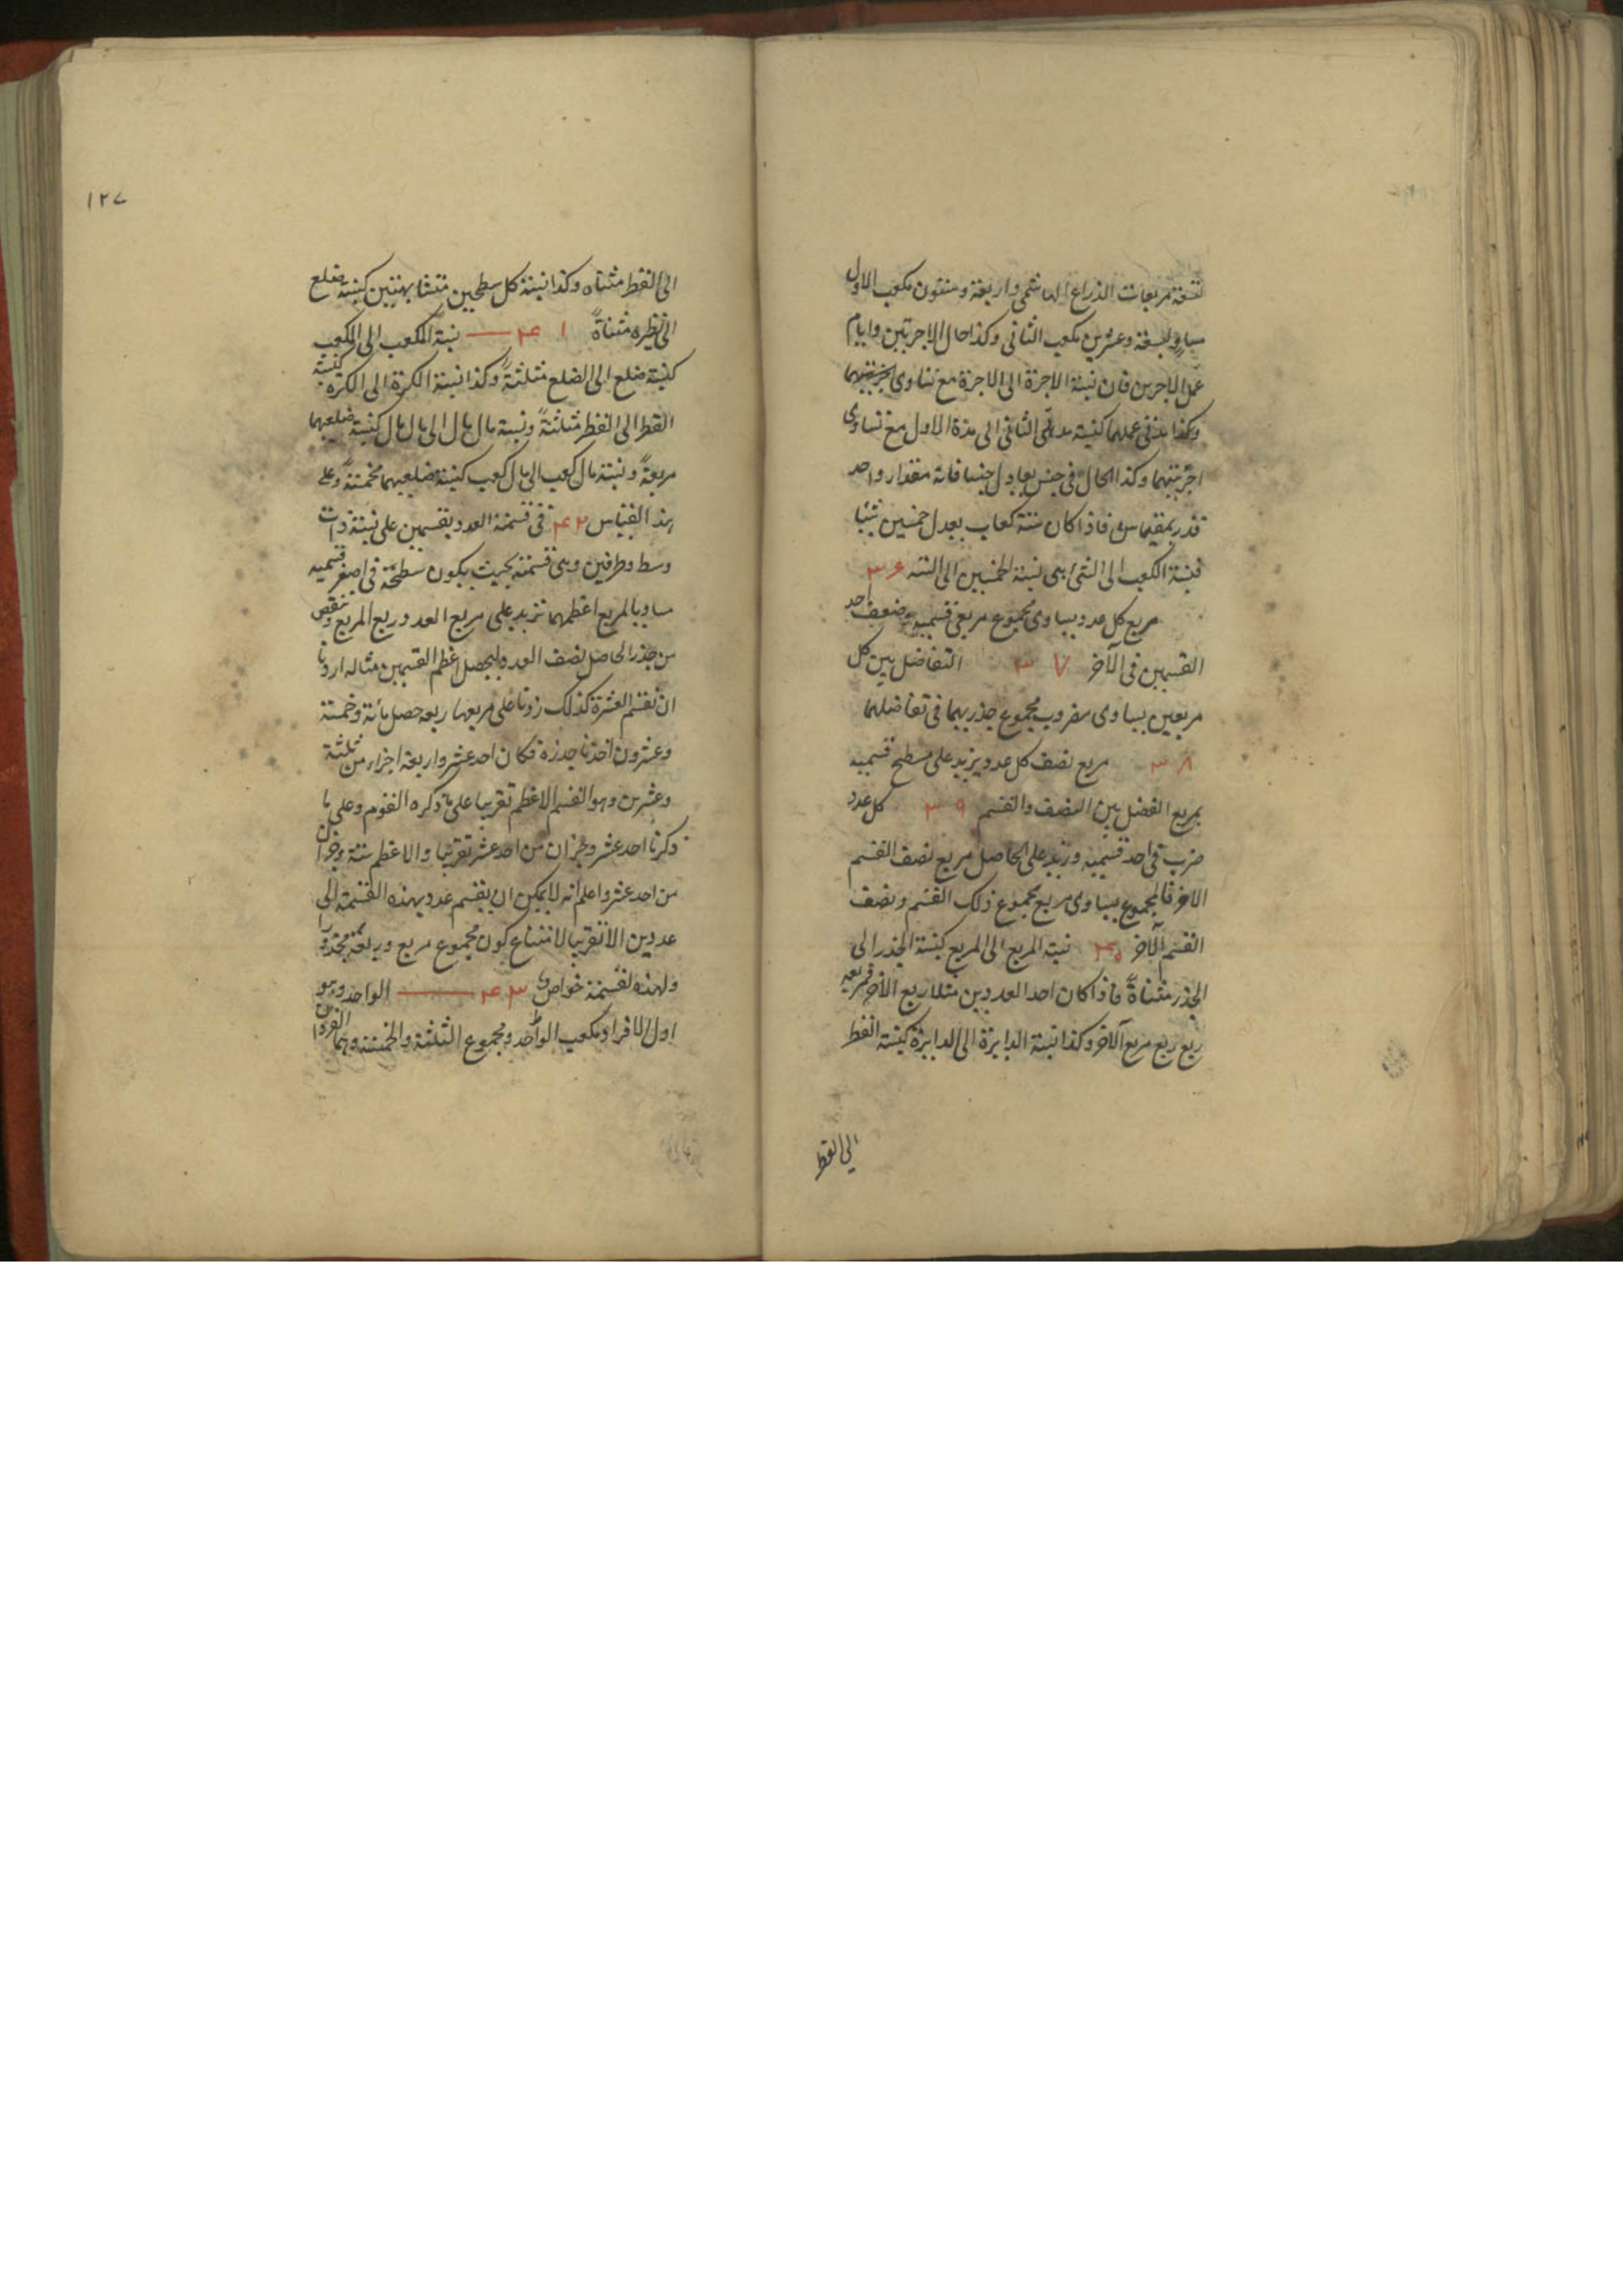 لتسعة مربعات الذراع الهاشمى واربعة وستون مكعب الاول
مساو لسبعة وعشرين مكعب الثانى وكذا حال الاجرتين وايام
عمل الاجيرين فان نسبة الاجرة الى الاجرة مع تساوى
وكذا عملهما كنسبة الثانى الى مدة الاول مع تساوى
اجرتيهما وكذا الحال فى جنس يعادل جنسا فانه مقدار واحد
قدر بمقياس فاذا كان ستة كعاب يعدل خمسين شيئا
فنسبة الكعب الى الشئ هى نسبة الخمسين الى الستة ۳۶
مربع كل عدد يساوى مجموع مربعى قسميه وضعف احد
القسمين فى الآخر ۳۷ التفاضل بين كل
مربعين يساوى مضروب مجموع جذريهما فى تفاضلهما
۳۸ مربع نصف كل عدد يزيد على مسطح قسميه
بمربع الفضل بين النصف والقسم ۳۹ كل عدد
ضرب فى احد قسميه وزيد على الحاصل مربع نصف القسم
الاخر فالمجموع يساوى مربع مجموع ذلك القسم ونصف
القسم الآخر ۴۰ نسبة المربع الى المربع كنسبة الجذر الى
الجذر مثناة فاذا كان احد العددين مثلا ربع الآخر فمربعه
ربع ربع مربع الآخر وكذا نسبة الدايرة الى الدايرة كنسبة القطر
الى القطر
۱۲۷
الى القطر مثناه وكذا نسبة كل سطحين متشابهتين كنسبة ضلع
الى نظيره مثناةً ۴۱ نسبة المكعب الى المكعب
كنسبة ضلع الى الضلع مثلثةً وكذا نسبة الكرة الى الكرة كنسبة
القطر الى القطر مثلثةً ونسبة مال مال الى مال مال كنسبة ضلعيهما
مربعةً ونسبة مال كعب الى مال كعب كنسبة ضلعيهما مخمسةً وعلى
هذا القياس ۴۲ فى قسمة العدد بقسمين على نسبة ذات
وسط وطرفين وهى قسمته بحيث يكون سطحه فى اصغر قسميه
مساويا لمربع اعظمهما نزيد على مربع العدد ربع المربع وننقص
من جذر الحاصل نصف العدد ليحصل اعظم القسمين مثاله اردنا
ان نقسم العشرة كذلك زدنا على مربعها ربعه حصل مائة وخمسة
وعشرون اخذنا جذره فكان احد عشر واربعة اجزاء من ثلثة
وعشرين وهو القسم الاعظم تقريبا على ما ذكره القوم وعلى ما
ذكرنا احد عشر وجزآن من احد عشر تقريبا والاعظم ستة وجزآن
من احد عشر واعلم انه لا يمكن ان ينقسم عدد بهذه القسمة الى
عددين الا تقريبا لامتناع كون مجموع مربع وربعه مجذورا
ولهذه القسمة خواص ۴۳ الواحد وهو
اول الافراد ومكعب الواحد ومجموع الثلثة والخمسة وهما